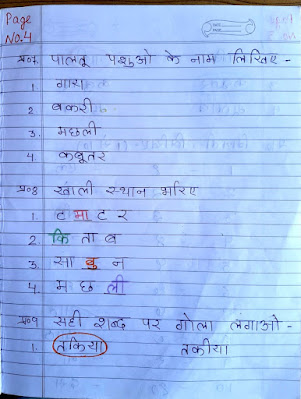 Page
No.4
प्र०7 पालतू पशुओ के नाम लिखिए -
1. गाय
2. बकरी
3. मछली
4. कबूतर
प्र०8 खाली स्थान भरिए
1. ट मा ट र
2. कि ता ब
3. सा बु न
4. म छ ली
प्र०9 सही शब्द पर गोला लगाओ -
1. तकिया तकीया